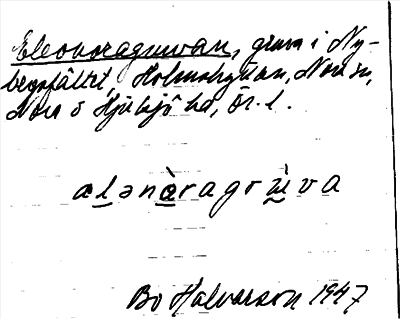 Eleonoragruvan, gruva i Ny-
bergsfältet, Holmshyttan, Nora sn,
Nora o Hjulsjö hd, Ör. l.
alənòragrùva
Bo Halvarson 1947